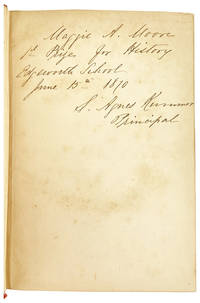 Maggie A. Moore
1st Prize for History
Edgeworth School
June 15th 1870
S. Agnes
Principal